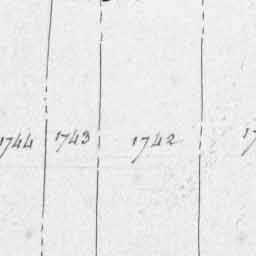 1744 1743 1742